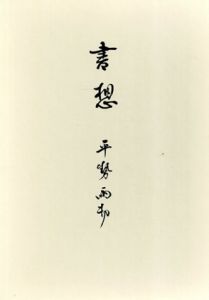 書想
平㔟雨邨